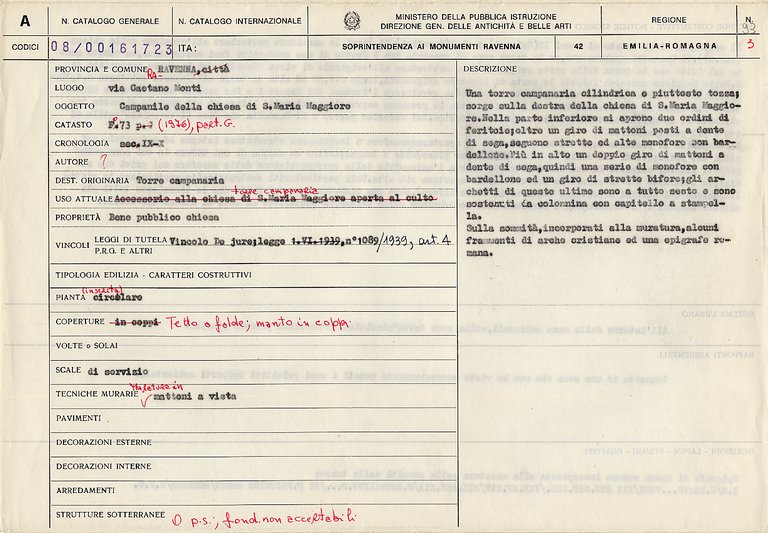 A
N. CATALOGO GENERALE
N. CATALOGO INTERNAZIONALE
MINISTERO DELLA PUBBLICA ISTRUZIONE
DIREZIONE GEN. DELLE ANTICHITÀ E BELLE ARTI
REGIONE
N.
93
CODICI
08/00161723
ITA:
SOPRINTENDENZA AI MONUMENTI RAVENNA
42
EMILIA-ROMAGNA
3
PROVINCIA E COMUNE RA- RAVENNA,città
LUOGO via Gaetano Monti
OGGETTO Campanile della chiesa di S.Maria Maggiore
CATASTO F.73 (1376), part. G.
CRONOLOGIA sec.IX-X
AUTORE ?
DEST. ORIGINARIA Torre campanaria
torre campanaria
USO ATTUALE Accessorio alla chiesa di S.Maria Maggiore aperta al culto
PROPRIETÀ Bene pubblico chiesa
VINCOLI LEGGI DI TUTELA Vincolo De jure;legge 1.VI.1939,n°1089/1939, art. 4
P.R.G. E ALTRI
TIPOLOGIA EDILIZIA - CARATTERI COSTRUTTIVI
(inscritta)
PIANTA circolare
COPERTURE in coppi Tetto a falde; manto in coppi
VOLTE o SOLAI
SCALE di servizio
muratura in
TECNICHE MURARIE mattoni a vista
PAVIMENTI
DECORAZIONI ESTERNE
DECORAZIONI INTERNE
ARREDAMENTI
STRUTTURE SOTTERRANEE O p.s.; fond. non accertabili
DESCRIZIONE
Una torre campanaria cilindrica e piuttosto tozza;
sorge sulla destra della chiesa di S.Maria Maggio-
re.Nella parte inferiore si aprono due ordini di
feritoie;oltre un giro di mattoni posti a dente
di sega,seguono strette ed alte monofore con bar-
dellone.Più in alto un doppio giro di mattoni a
dente di sega,quindi una serie di monofore con
bardellone ed un giro di strette bifore;gli ar-
chetti di queste ultime sono a tutto sesto e sono
sostenuti da colonnine con capitello a stampel-
la.
Sulla sommità,incorporati alla muratura,alcuni
frammenti di arche cristiane ed una epigrafe ro-
mana.